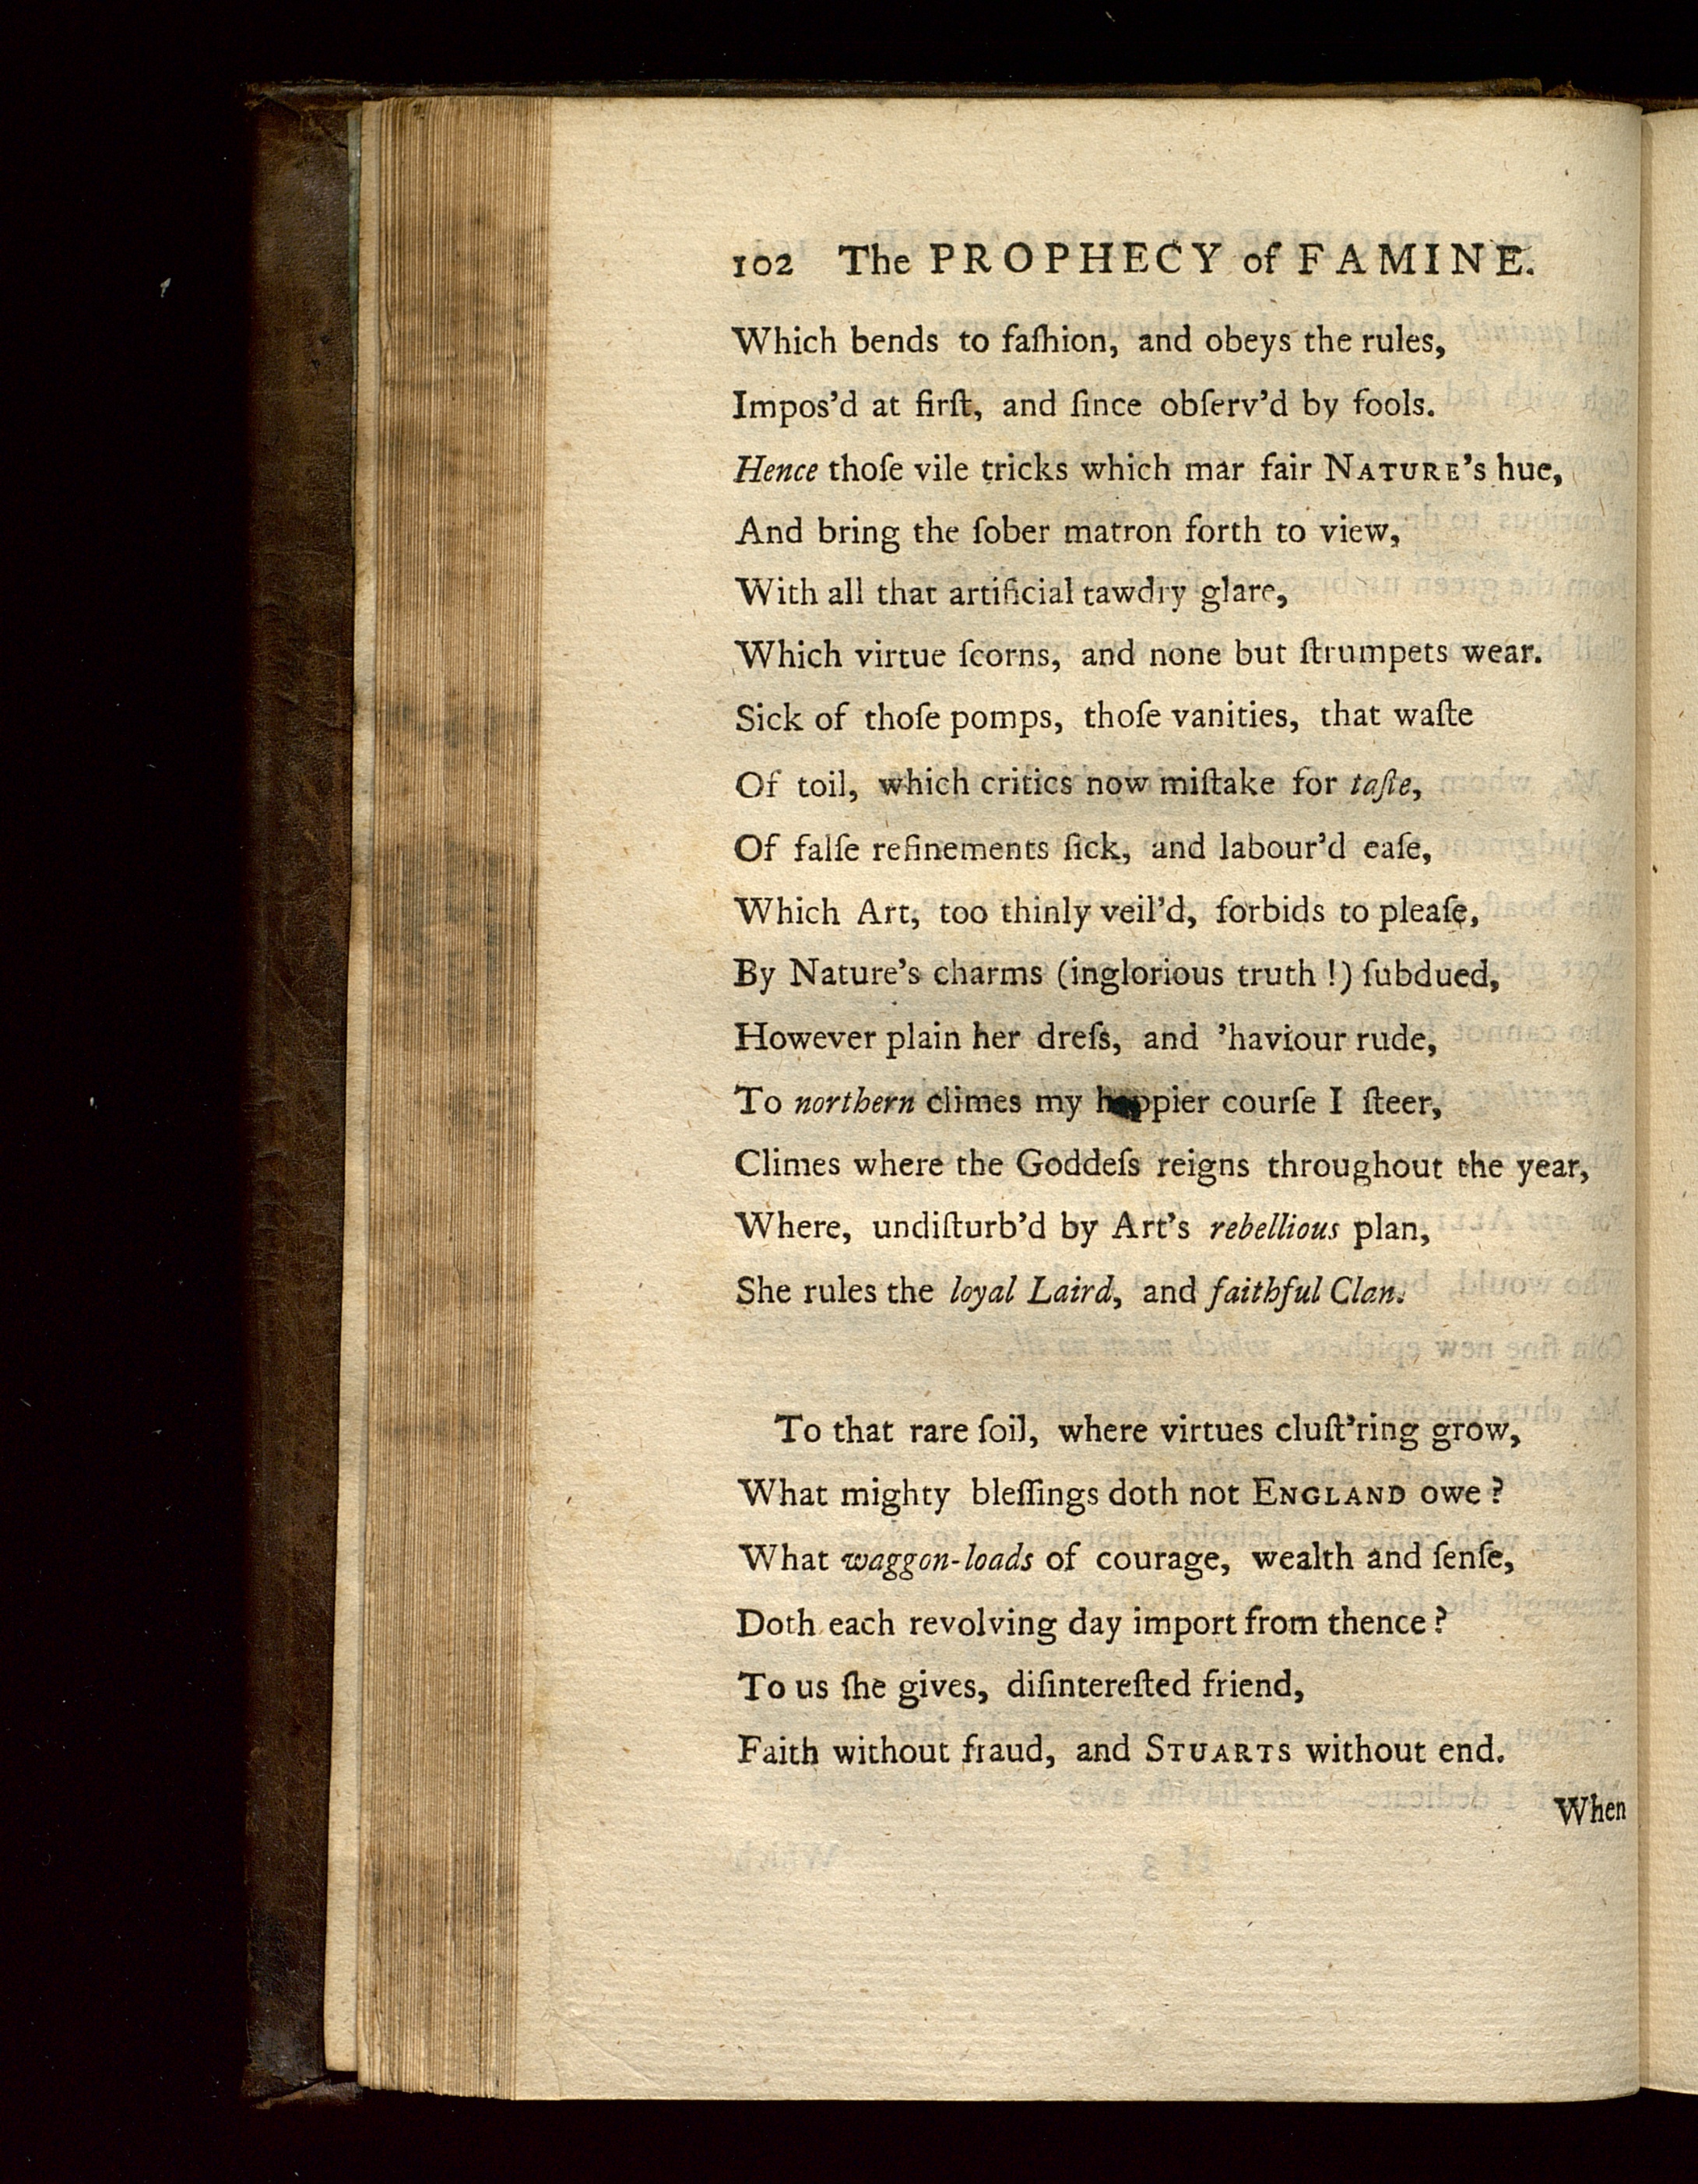 102 The PROPHECY of FAMINE.
Which bends to faſhion, and obeys the rules,
Impos'd at firſt, and ſince obſerv'd by fools.
Hence thoſe vile tricks which mar fair NATURE's hue,
And bring the ſober matron forth to view,
With all that artificial tawdry glare,
Which virtue ſcorns, and none but ſtrumpets wear.
Sick of thoſe pomps, thoſe vanities, that waſte
Of toil, which critics now miſtake for taſte,
Of falſe refinements ſick, and labour'd eaſe,
Which Art, too thinly veil'd, forbids to pleaſe,
By Nature's charms (inglorious truth !) ſubdued,
However plain her dreſs, and 'haviour rude,
To northern climes my happier courſe I ſteer,
Climes where the Goddeſs reigns throughout the year,
Where, undiſturb'd by Art's rebellious plan,
She rules the loyal Laird, and faithful Clan.
To that rare ſoil, where virtues cluſt'ring grow,
What mighty bleſſings doth not ENGLAND owe ?
What waggon-loads of courage, wealth and ſenſe,
Doth each revolving day import from thence ?
To us ſhe gives, diſintereſted friend,
Faith without fraud, and STUARTS without end.
When